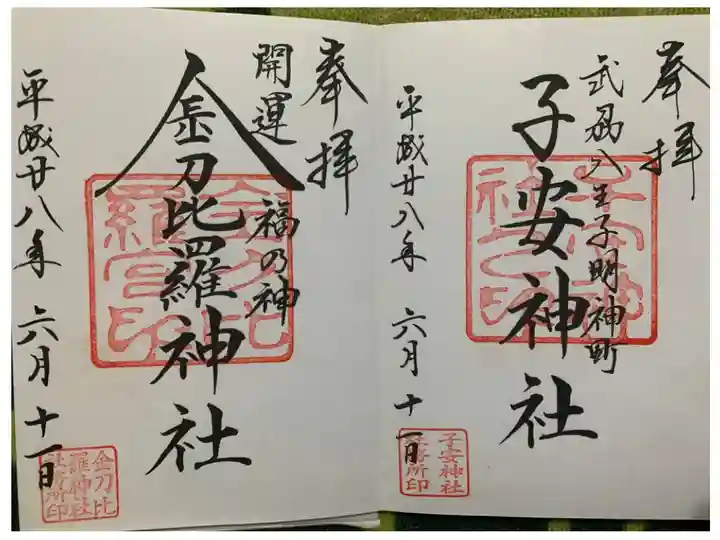 奉拝
武州八王子明神町
子安神社
平成廿八年 六月十一日
子安神社
社務所印
奉拝
開運 福の神
金刀比羅神社
平成廿八年 六月十一日
金刀比
羅神社
社務所印